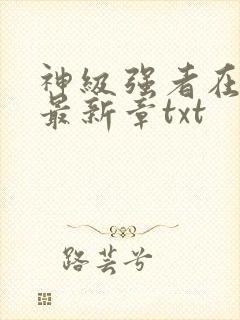 神级强者在
最新章txt
路芸兮